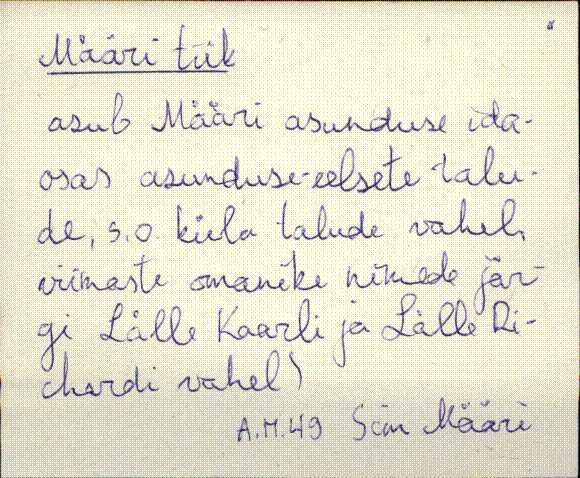 Määri tiik
asub Määri asunduse ida-
osas asunduse-eelsete talu-
de, s.o. küla talude vahel,
viimaste omanike nimede jär-
gi Lälle Kaarli ja Lälle Ri-
chardi vahel)
A.M.49 Sim Määri